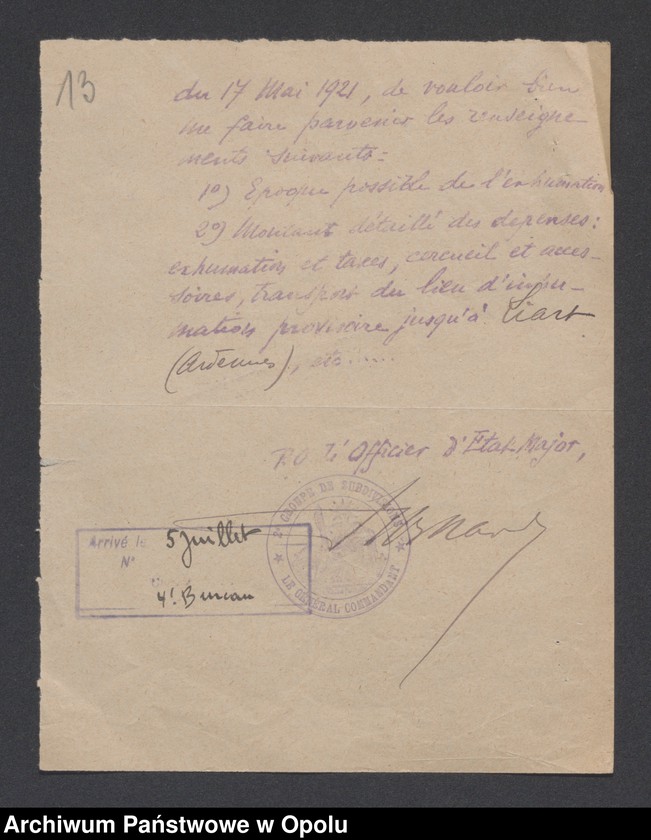 13
du 17 Mai 1921, de vouloir bien
me faire parvenir les renseigne-
ments suivants:
1º) Epoque possible de l'exhumation
2º) Montant détaillé des depenses:
exhumation et taxes, cercueil et acces-
soires, transport du lieu d'inhu-
mation provisoire jusqu'à Liart
(Ardennes), etc.....
P.O. l'Officier d'Etat-Major,
2e GROUPE DE SUBDIVISIONS
LE GÉNÉRAL COMMANDANT
Arrivé le 5 Juillet
N°
4! Bureau
Archiwum Państwowe w Opolu